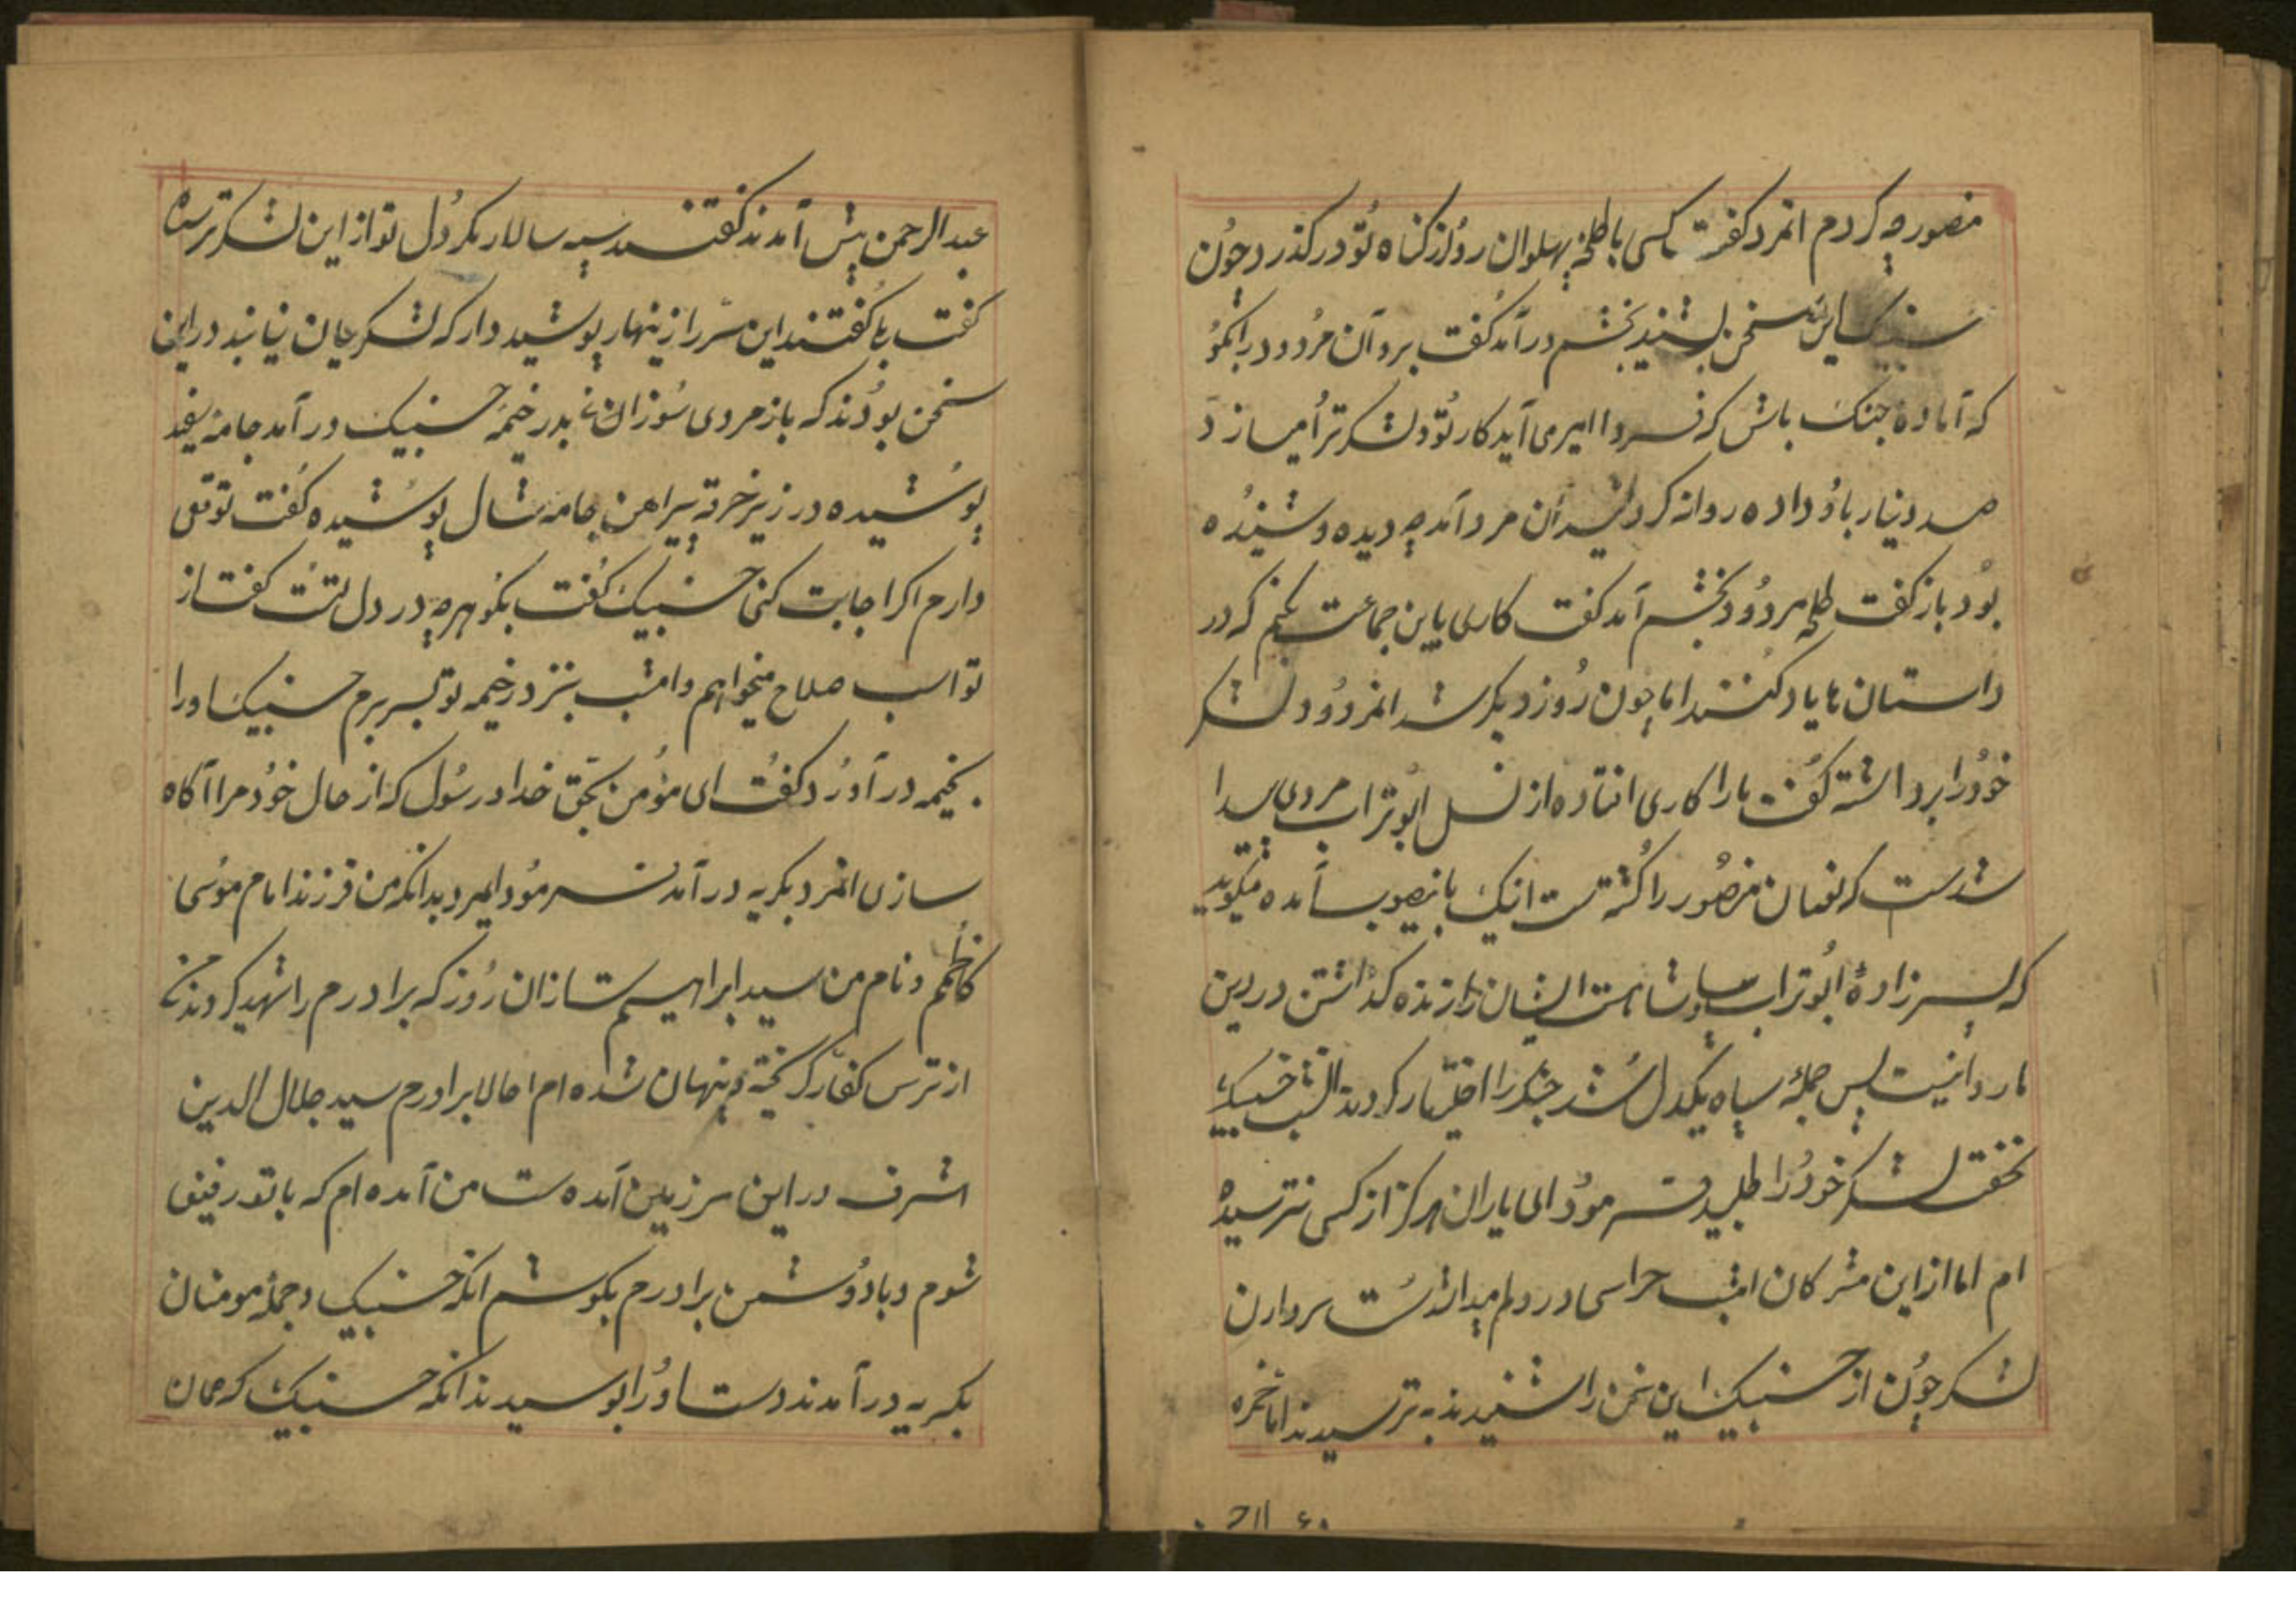 منصور چه کردم انمرد کفت کسی با طلحه پهلوان رو از کناه تو در کذرد چون
سنبک این سخن بشنید بخشم در آمد کفت برو آن مردود را بکو
که آماده جنک باش که فردا امیر می آید کار تو و لشکر ترا میسازد
صد دینار باو داده روانه کرد آن مرد آمد چه دیده و شنیده
بود باز کفت طلحه مردود بخشم آمد کفت کاری باین جماعت بکنم که در
داستان ها یاد کنند اما چون روز دیکر شد انمردود لشکر
خود را برداشته کفت ما را کاری افتاده از نسل ابوتراب مردی پیدا
شدست که نعمان منصور را کشته است اینک باینصوب آمده میکوید
که پسر زاده ابوتراب ایشان را زنده کذاشتن در دین
ما روا نیست پس جمله سپاه یکدل شد جنک را اختیار کردند الشب خسبیک
لشکر خود را طلبید فرمود ای یاران هرکز از کسی نترسیده
ام اما از این مشرکان امشب حراسی در دلم پیدا شدست سرداران
لشکر چون از حسنبیک این سخن را شنیدند به ترسیدند اما خمره
عبدالرحمن پیش آمدند کفتند سپه سالار مکر دل تو از این لشکر ترسیده
کفت بلی کفتند این سر را زینهار پوشیده دار که لشکریان نیابند در این
سخن بودند که باز مردی سوزان بدر خیمه حسنبیک در آمد جامه سفید
پوشیده در زیر خرقه پیراهن جامه شال پوشیده کفت توقعی
دارم اکر اجابت کنی حسنبیک کفت بکو هرچه در دل تست کفت از
تو اسب صلاح میخواهم و امشب بنزد خیمه تو بسر برم حسنبیک او را
بخیمه در آورد کفت ای مؤمن بحق خدا و رسول که از حال خود مرا آکاه
سازی انمرد بکریه در آمد فرمود ایمرد بدانکه من فرزند امام موسی
کاظمم و نام من سید ابراهیم است ازان روز که برادرم را شهید کردند من
از ترس کفار کریخته و پنهان شده ام احالا برادرم سید جلال الدین
اشرف در این سرزمین آمده است من آمده ام که با تو رفیق
شوم و با دوشمن برادرم بکوشم انکه حسنبیک و جمله مومنان
بکریه در آمدند دست او را بوسیدند انکه حسنبیک که عمان
۶۰